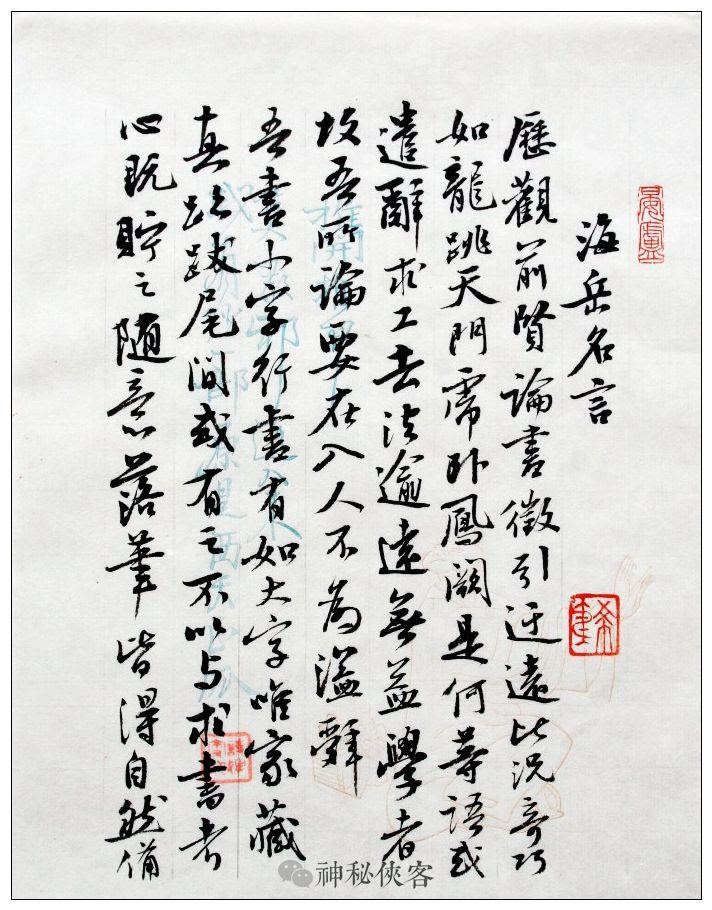 海岳名言
歷觀前賢論書徵引迂遠比況奇巧
如龍跳天門虎卧鳳闕是何等語或
遣辭求工去法逾遠無益學者
故吾所論要在入人不為溢辭
吾書小字行書有如大字唯家藏
真跡跋尾間或有之不以与求書者
心既貯之随意落筆皆得自然備
神秘俠客